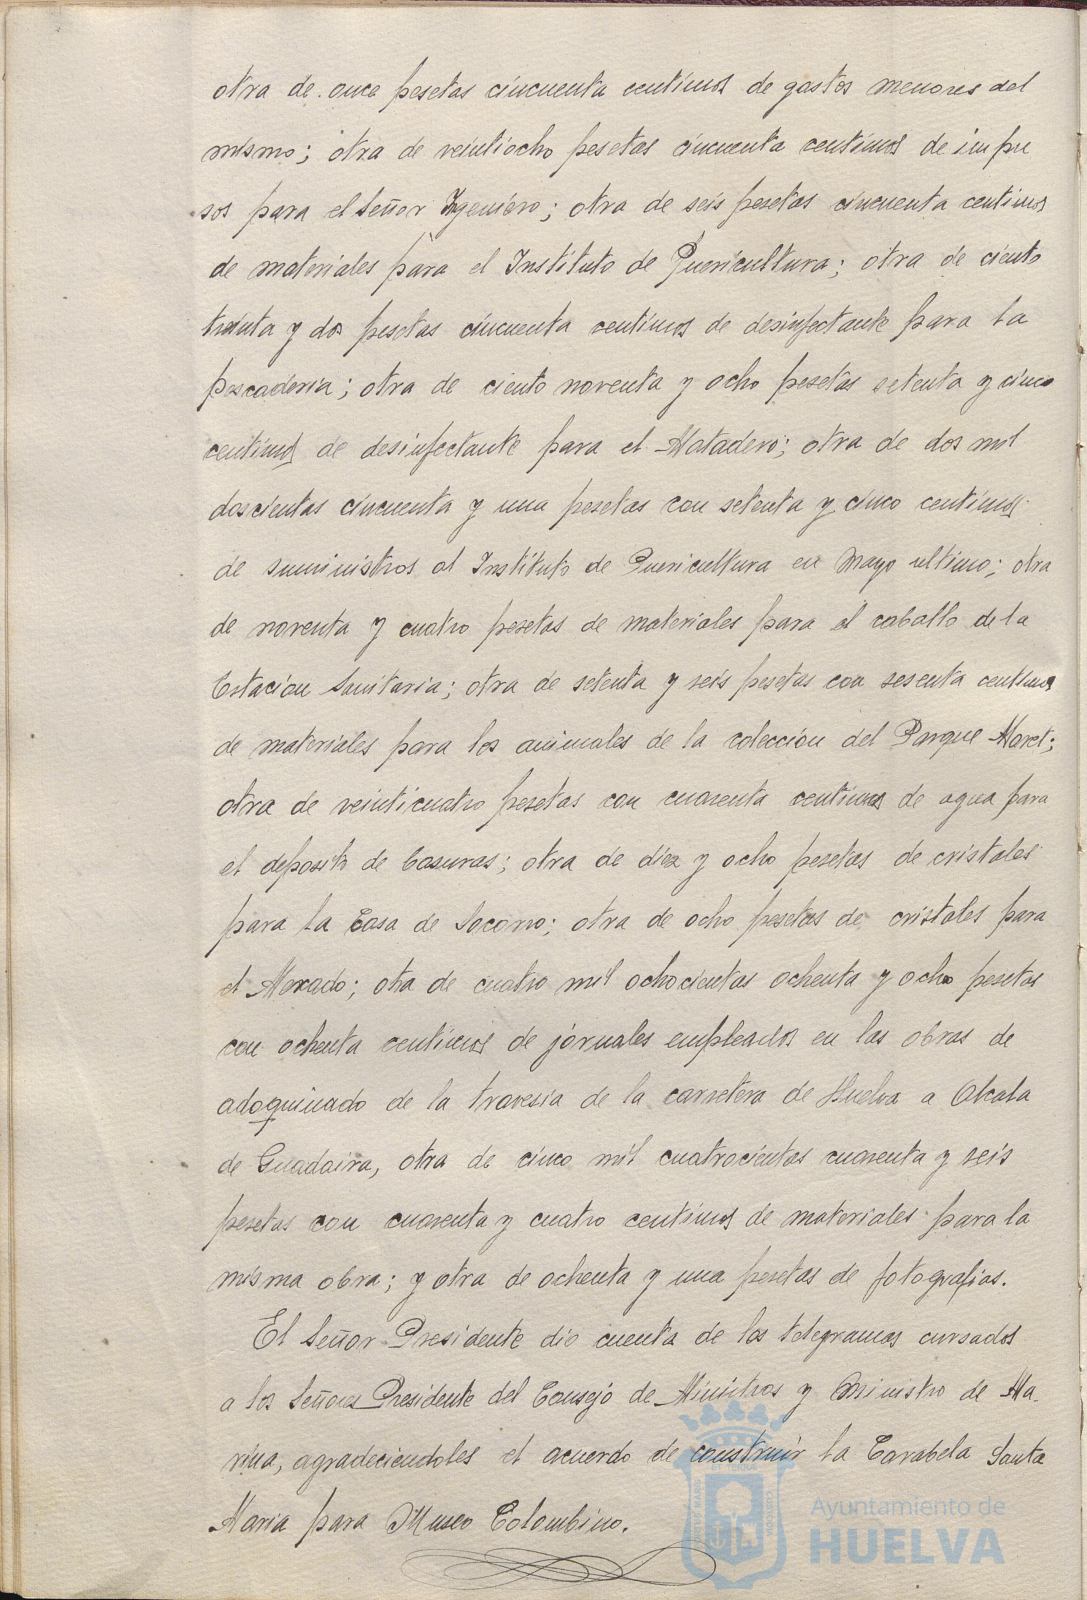 otra de once pesetas cincuenta centimos de gastos menores del
mismo; otra de veintiocho pesetas cincuenta centimos de impre
sos para el Señor Igeniero; otra de seis pesetas cincuenta centimos
de materiales para el Instituto de Puericultura; otra de ciento
treinta y dos pesetas cincuenta centimos de desinfectante para la
pescaderia; otra de ciento noventa y ocho pesetas setenta y cinco
centimos de desinfectante para el Matadero; otra de dos mil
doscientas cincuenta y una pesetas con setenta y cinco centimos
de suministros al Instituto de Puericultura en Mayo ultimo; otra
de noventa y cuatro pesetas de materiales para el caballo de la
Estacion Sanitaria; otra de setenta y seis pesetas con sesenta centimos
de materiales para los animales de la coleccion del Parque Moret;
otra de veinticuatro pesetas con cuarenta centimos de agua para
el deposito de basuras; otra de diez y ocho pesetas de cristales
para la Casa de Socorro; otra de ocho pesetas de cristales para
el Mercado; otra de cuatro mil ochocientas ochenta y ocho pesetas
con ochenta centimos de jornales empleados en las obras de
adoquinado de la travesia de la carretera de Huelva a Alcala
de Guadaira, otra de cinco mil cuatrocientas cuarenta y seis
pesetas con cuarenta y cuatro centimos de materiales para la
misma obra; y otra de ochenta y una pesetas de fotografias.
El Señor Presidente dio cuenta de los telegramas cursados
a los Señores Presidente del Consejo de Ministros y Ministro de Ma-
rina, agradeciendoles el acuerdo de construir la Carabela Santa
Maria para Museo Colombino.
Ayuntamiento de
HUELVA